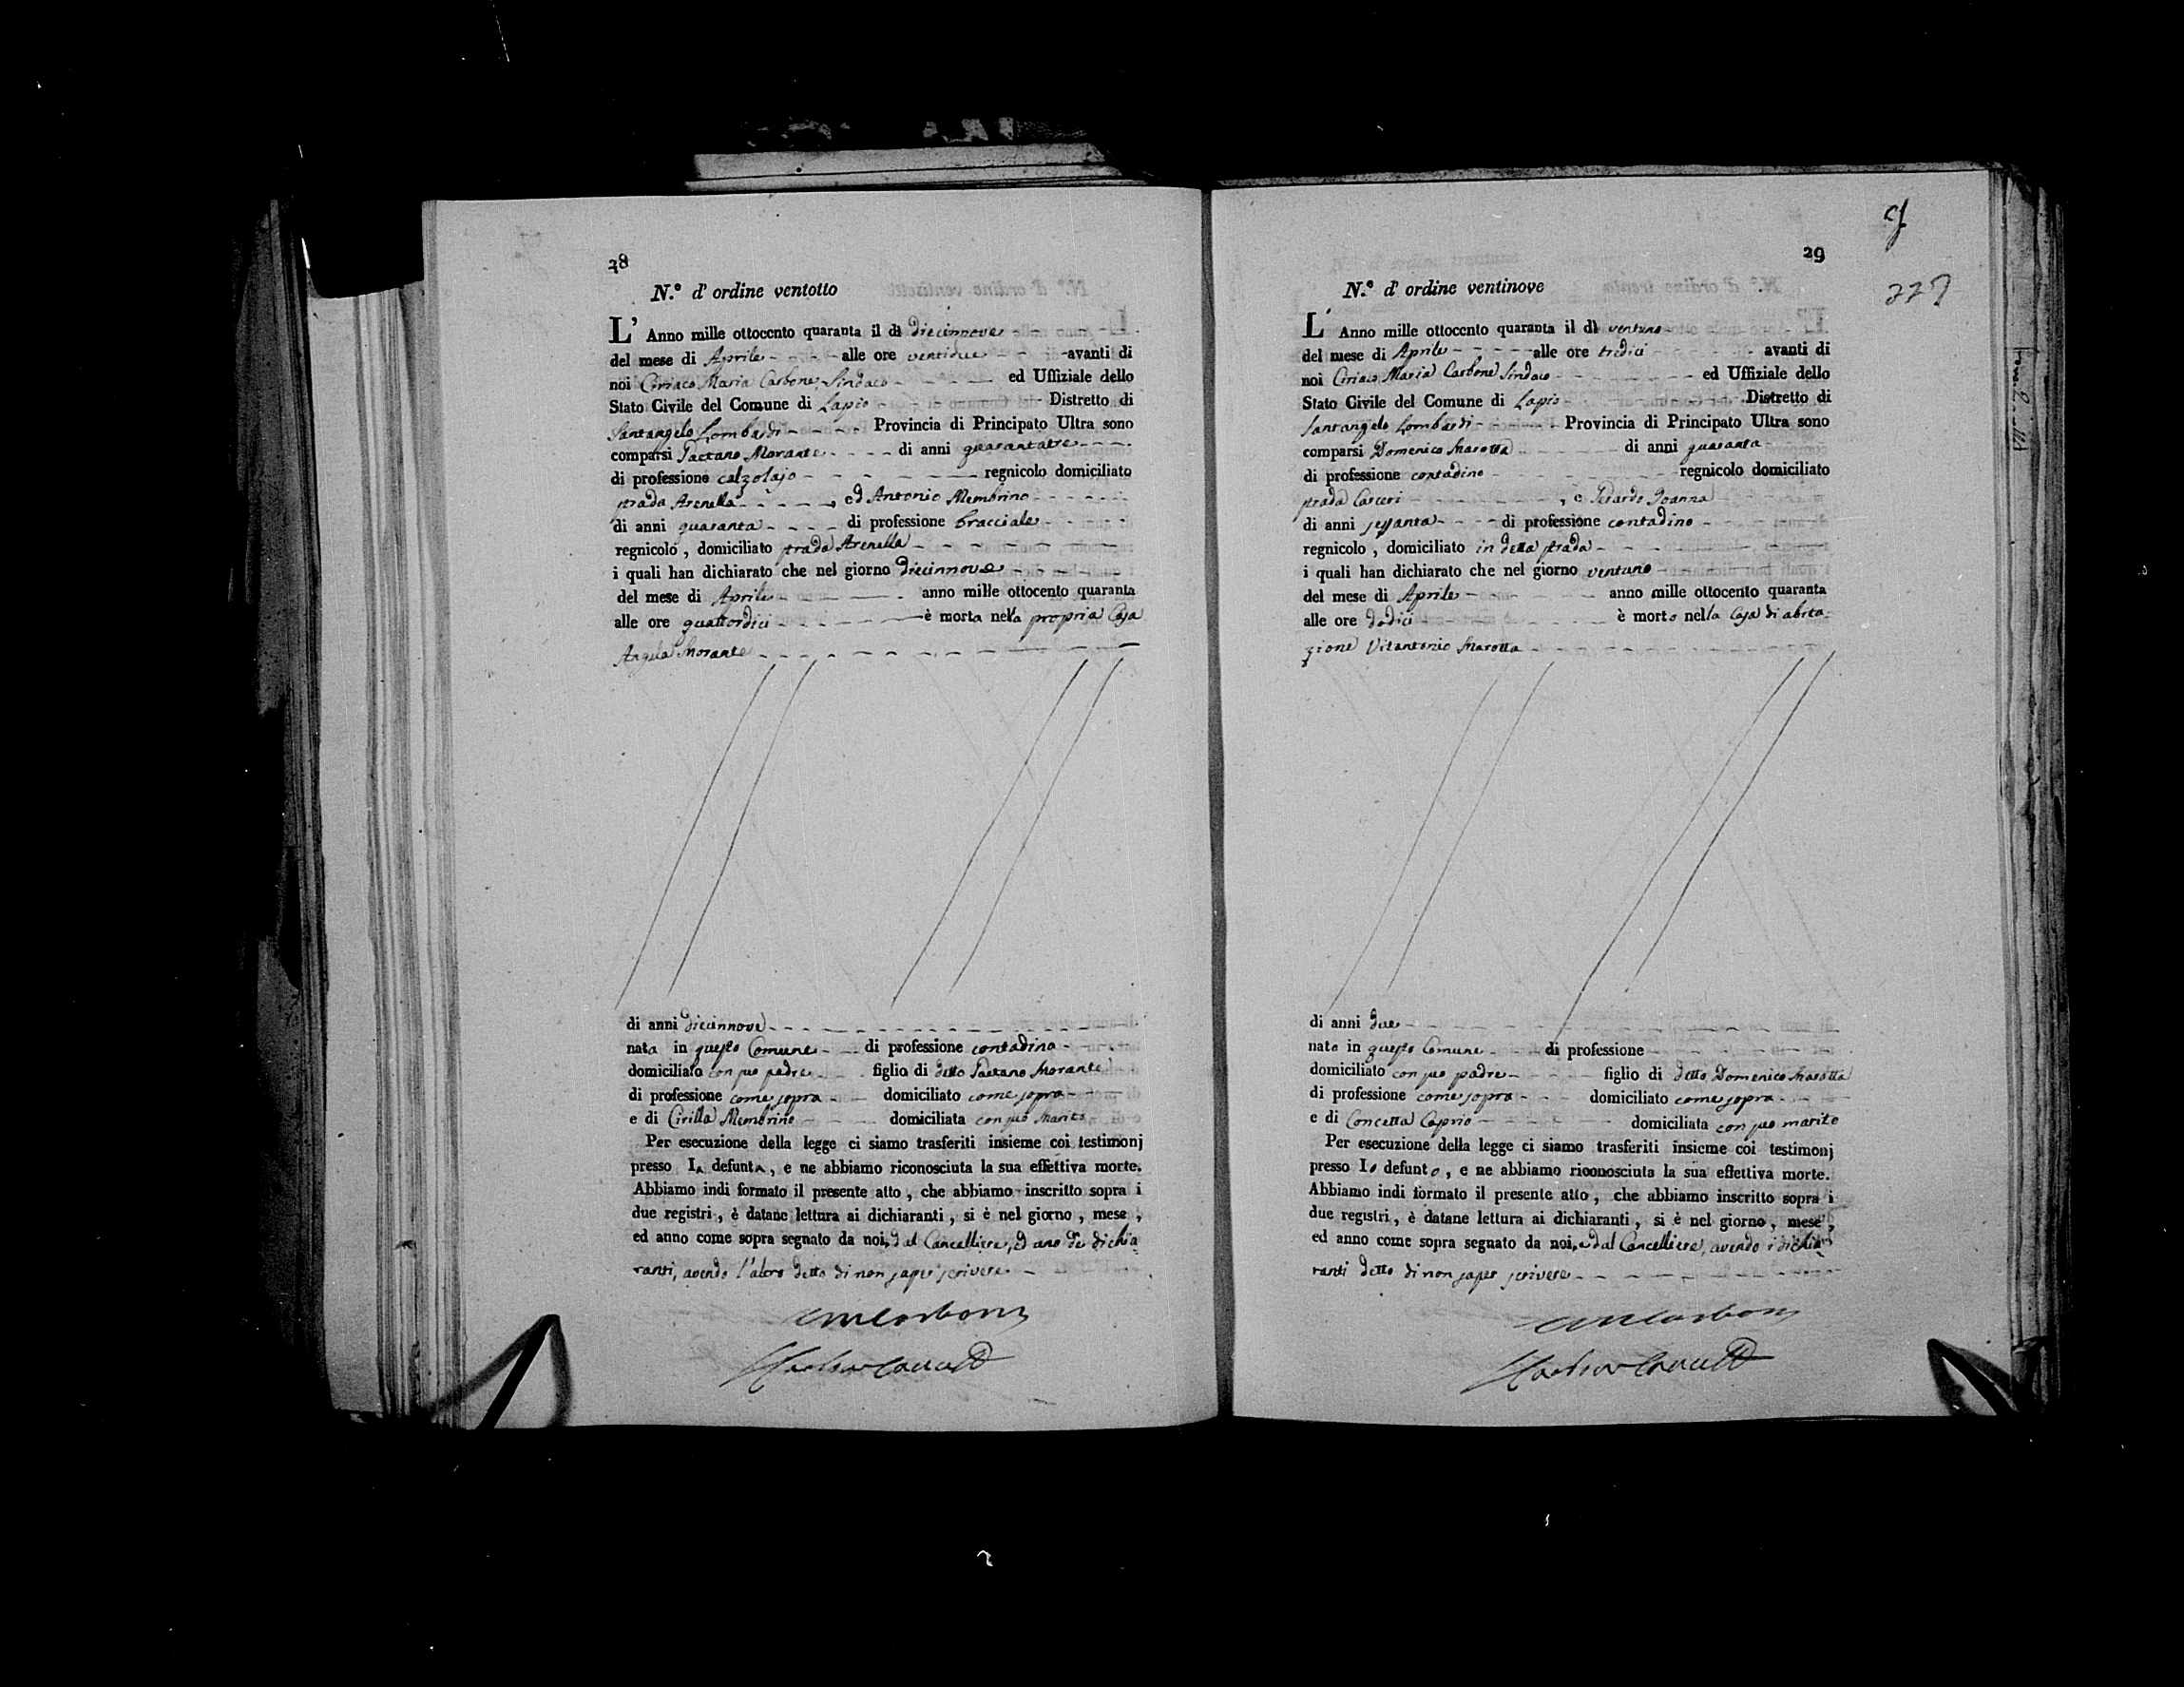 28
N.º d' ordine ventotto
L' Anno mille ottocento quaranta il dì diecinnove
del mese di Aprile alle ore ventidue avanti di
noi Ciriaco Maria Carbone Sindaco ed Uffiziale dello
Stato Civile del Comune di Lapio Distretto di
Santangelo Lombardi Provincia di Principato Ultra sono
comparsi Gaetano Morante di anni quarantatre
di professione calzolajo regnicolo domiciliato
strada Arenella, ed Antonio Membrino
di anni quaranta di professione bracciale
regnicolo, domiciliato strada Arenella
i quali han dichiarato che nel giorno diecinnove
del mese di Aprile anno mille ottocento quaranta
alle ore quattordici è morta nella propria Casa
Angela Morante
di anni diecinnove
nata in questo Comune di professione contadina
domiciliato con suo padre figlio di detto Gaetano Morante
di professione come sopra domiciliato come sopra
e di Cirilla Membrino domiciliata con suo Marito
Per esecuzione della legge ci siamo trasferiti insieme coi testimonj
presso la defunta, e ne abbiamo riconosciuta la sua effettiva morte.
Abbiamo indi formato il presente atto, che abbiamo inscritto sopra i
due registri, è datane lettura ai dichiaranti, si è nel giorno, mese,
ed anno come sopra segnato da noi, dal Cancelliere, ed uno de dichia
ranti, avendo l'altro detto di non saper scrivere
CMCarbone
29
N.º d' ordine ventinove
L' Anno mille ottocento quaranta il dì ventuno
del mese di Aprile alle ore tredici avanti di
noi Ciriaco Maria Carbone Sindaco ed Uffiziale dello
Stato Civile del Comune di Lapio Distretto di
Santangelo Lombardi Provincia di Principato Ultra sono
comparsi Domenico Marotta di anni quaranta
di professione contadino regnicolo domiciliato
strada Carceri, e Gerardo Joanna
di anni sessanta di professione contadino
regnicolo, domiciliato in detta strada
i quali han dichiarato che nel giorno ventuno
del mese di Aprile anno mille ottocento quaranta
alle ore dodici è morto nella Casa di abita-
zione Vitantonio Marotta
di anni due
nato in questo Comune di professione
domiciliato con suo padre figlio di detto Domenico Marotta
di professione come sopra domiciliato come sopra
e di Concetta Caprio domiciliata con suo marito
Per esecuzione della legge ci siamo trasferiti insieme coi testimonj
presso lo defunto, e ne abbiamo riconosciuta la sua effettiva morte.
Abbiamo indi formato il presente atto, che abbiamo inscritto sopra i
due registri, è datane lettura ai dichiaranti, si è nel giorno, mese,
ed anno come sopra segnato da noi, e dal Cancelliere, avendo i dichia
ranti detto di non saper scrivere
CMCarbone